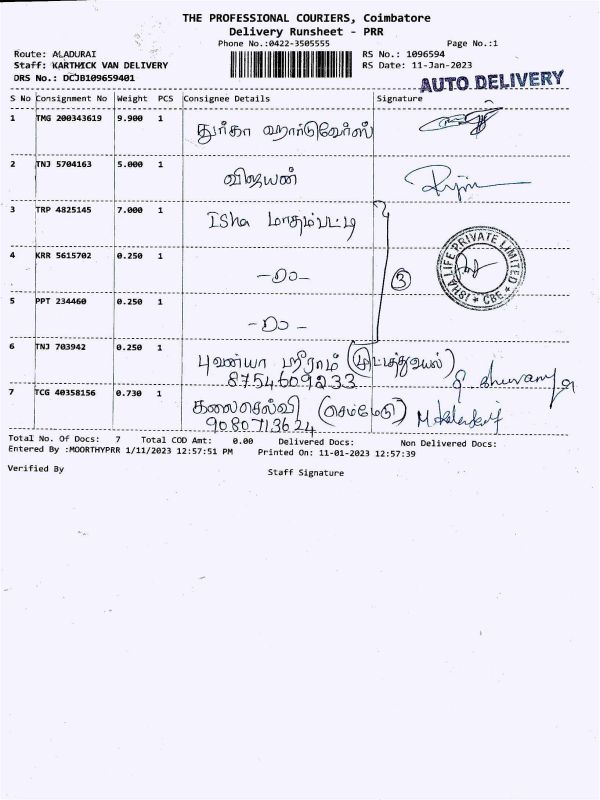 THE PROFESSIONAL COURIERS, Coimbatore
Delivery Runsheet - PRR
Phone No.:0422-3505555 Page No.:1
Route: ALADURAI RS No.: 1096594
Staff: KARTHICK VAN DELIVERY RS Date: 11-Jan-2023
DRS No.: DCJB109659401
AUTO DELIVERY
S No Consignment No Weight PCS Consignee Details Signature
1 TMG 200343619 9.900 1 துர்கா ஹார்டுவேர்ஸ்
2 TNJ 5704163 5.000 1 விஜயன்
3 TRP 4825145 7.000 1 Isha மாதம்பட்டி
4 KRR 5615702 0.250 1 -Do-
3
ISHA LIFE PRIVATE LIMITED * CBE *
5 PPT 234460 0.250 1 -Do-
6 TNJ 703942 0.250 1 புவன்யா ஸ்ரீராம் (முட்டத்துவயல்)
8754609233
7 TCG 40358156 0.730 1 கலைசெல்வி (செம்மேடு)
9080713624
Total No. Of Docs: 7 Total COD Amt: 0.00 Delivered Docs: Non Delivered Docs:
Entered By :MOORTHYPRR 1/11/2023 12:57:51 PM Printed On: 11-01-2023 12:57:39
Verified By Staff Signature